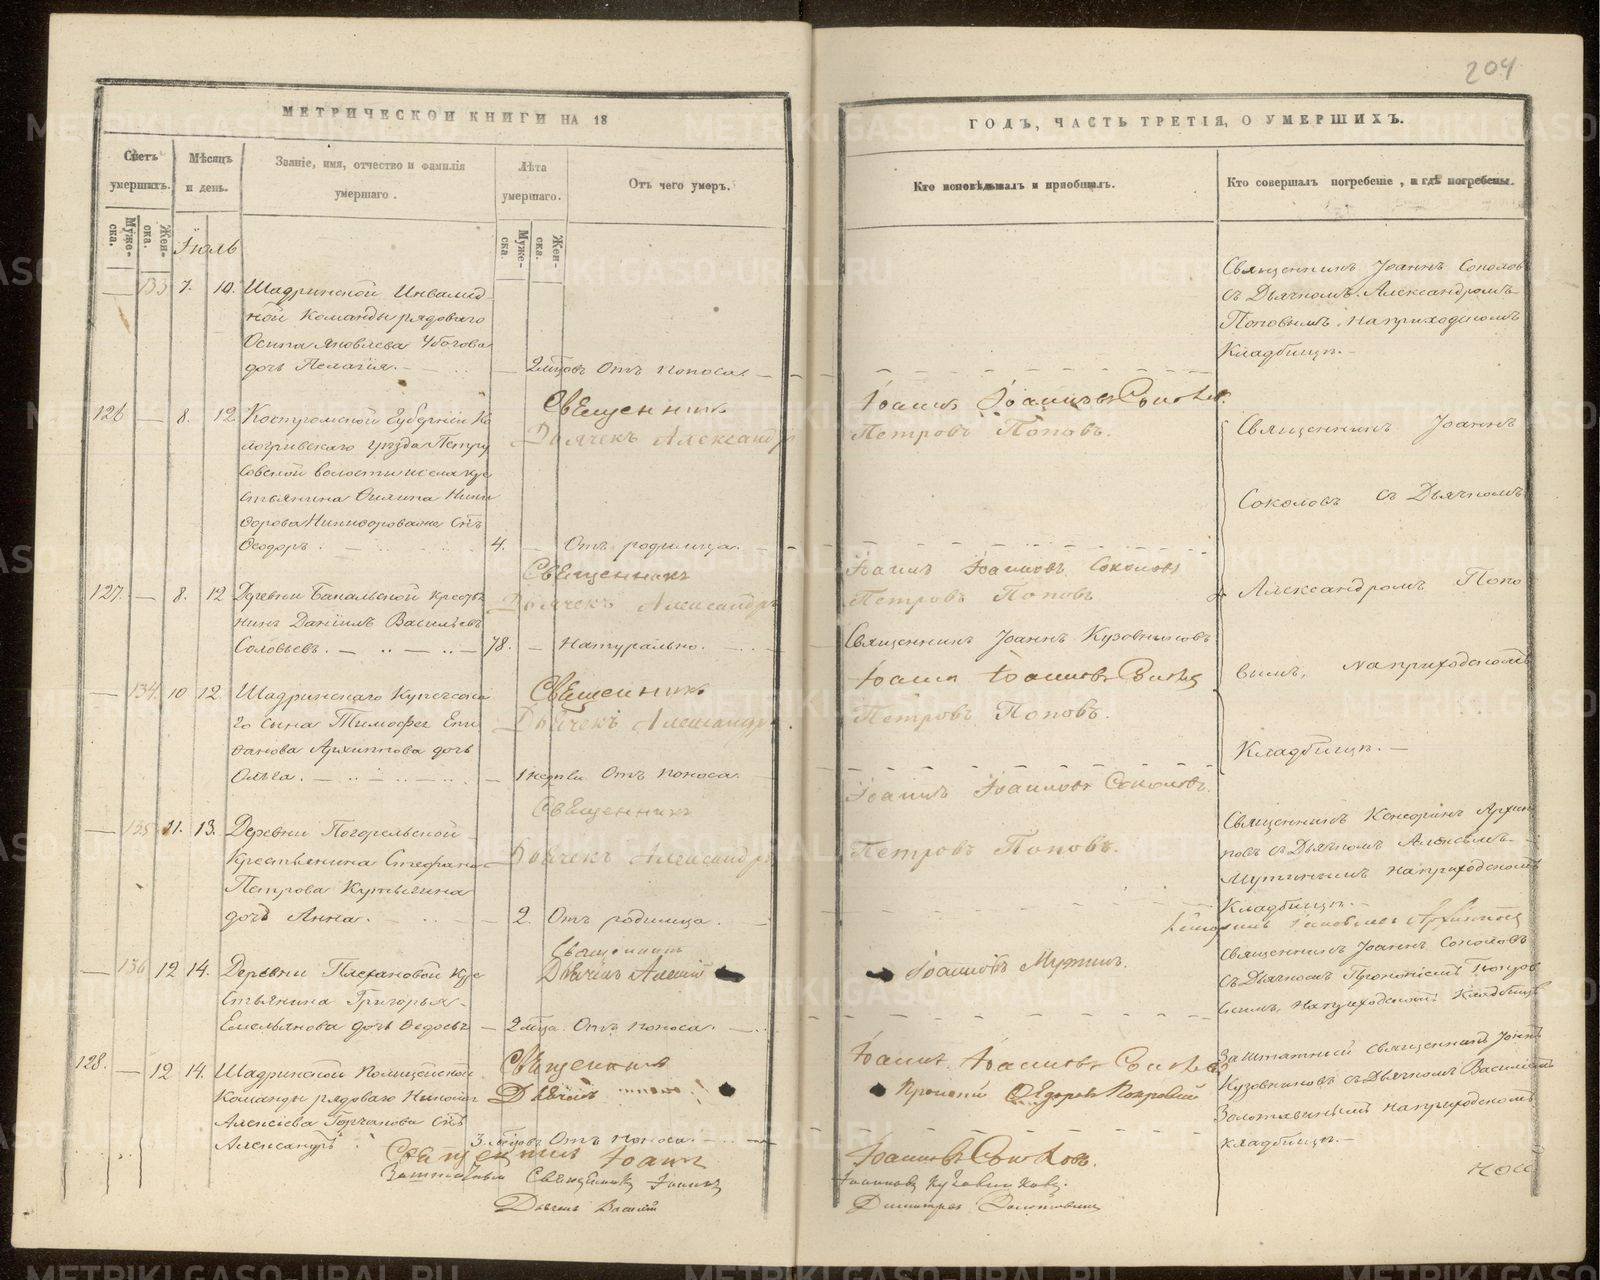 204
МЕТРИЧЕСКОЙ КНИГИ НА 18
ГОДЪ, ЧАСТЬ ТРЕТІЯ, О УМЕРШИХЪ.
Счетъ умершихъ.
Муже-ска.
Жен-ска.
Мѣсяцъ и день.
Званіе, имя, отчество и фамилія умершаго.
Лѣта умершаго.
Муже-ска.
Жен-ска.
Отъ чего умеръ.
Кто исповѣдывалъ и пріобщалъ.
Кто совершалъ погребеніе, и гдѣ погребены.
Іюль
— 133 7. 10. Шадринской Инвалид
ной Команды рядоваго
Осипа Яковлева
дочь Пелагія. — 2 мцовъ Отъ поноса
Священникъ Іоаннъ Соколовъ
съ Дьячкомъ Александромъ
Поповымъ, на приходскомъ
Кладбищѣ. —
Священникъ Іоаннъ Іоанновъ Соколовъ
Дьячекъ Александръ Петровъ Поповъ.
126 — 8. 12. Костромской Губерніи Ко
логривскаго уѣзда
волости
стьянина Филипа Ники
форова Никифорова сынъ
Феодоръ. 4. — Отъ родимца.
Священникъ Іоаннъ Іоанновъ Соколовъ
Дьячекъ Александръ Петровъ Поповъ
127. — 8. 12 Деревни Бакальской крестья
нинъ Даніилъ Васильевъ
Соловьевъ. — 78. — Натурально.
Священникъ Іоаннъ Кузовниковъ
Священникъ Іоаннъ Іоанновъ Соколовъ
Дьячекъ Александръ Петровъ Поповъ.
— 134 10 12. Шадринскаго Купеческа
го сына Тимофея Епи
фанова Архиппова дочь
Ольга. — 1 недѣли Отъ поноса.
Священникъ Іоаннъ
Соколовъ съ Дьячкомъ
Александромъ Попо
вымъ, на приходскомъ
Кладбищѣ. —
Священникъ Іоаннъ Іоанновъ Соколовъ.
Дьячекъ Александръ Петровъ Поповъ.
— 135 11. 13. Деревни Погорельской
Крестьянина Стефана
Петрова
дочь Анна. — 2. Отъ родимца.
Священникъ Архип
повъ съ Дьячкомъ Алексѣемъ
Мутинымъ на приходскомъ
Кладбищѣ. —
Священникъ Яковлевъ Архипповъ
Дьячекъ Алексій Іоанновъ Мутинъ.
— 136 12 14. Деревни Плехановой кре
стьянина Григорья
Емельянова дочь Федосья — 2 мца. Отъ поноса.
Священникъ Іоаннъ Соколовъ
съ Дьячкомъ Прокопіемъ Покров
скимъ, на приходскомъ Кладбищѣ
Священникъ Іоаннъ Іоанновъ Соколовъ
Дьячекъ Прокопій Федоровъ Покровскій
128. — 12 14. Шадринской Полицейской
Команды рядоваго Николая
Алексіева Горчакова сынъ
Александръ. 3. мцовъ Отъ поноса. —
Заштатный священникъ Іоаннъ
Кузовниковъ съ Дьячкомъ Василіемъ
Золотавинымъ на приходскомъ
кладбищѣ. —
Священникъ Іоаннъ Іоанновъ Соколовъ.
Заштатный Священникъ Іоаннъ Іоанновъ Кузовниковъ.
Дьячекъ Василій Димитріевъ Золотавинъ